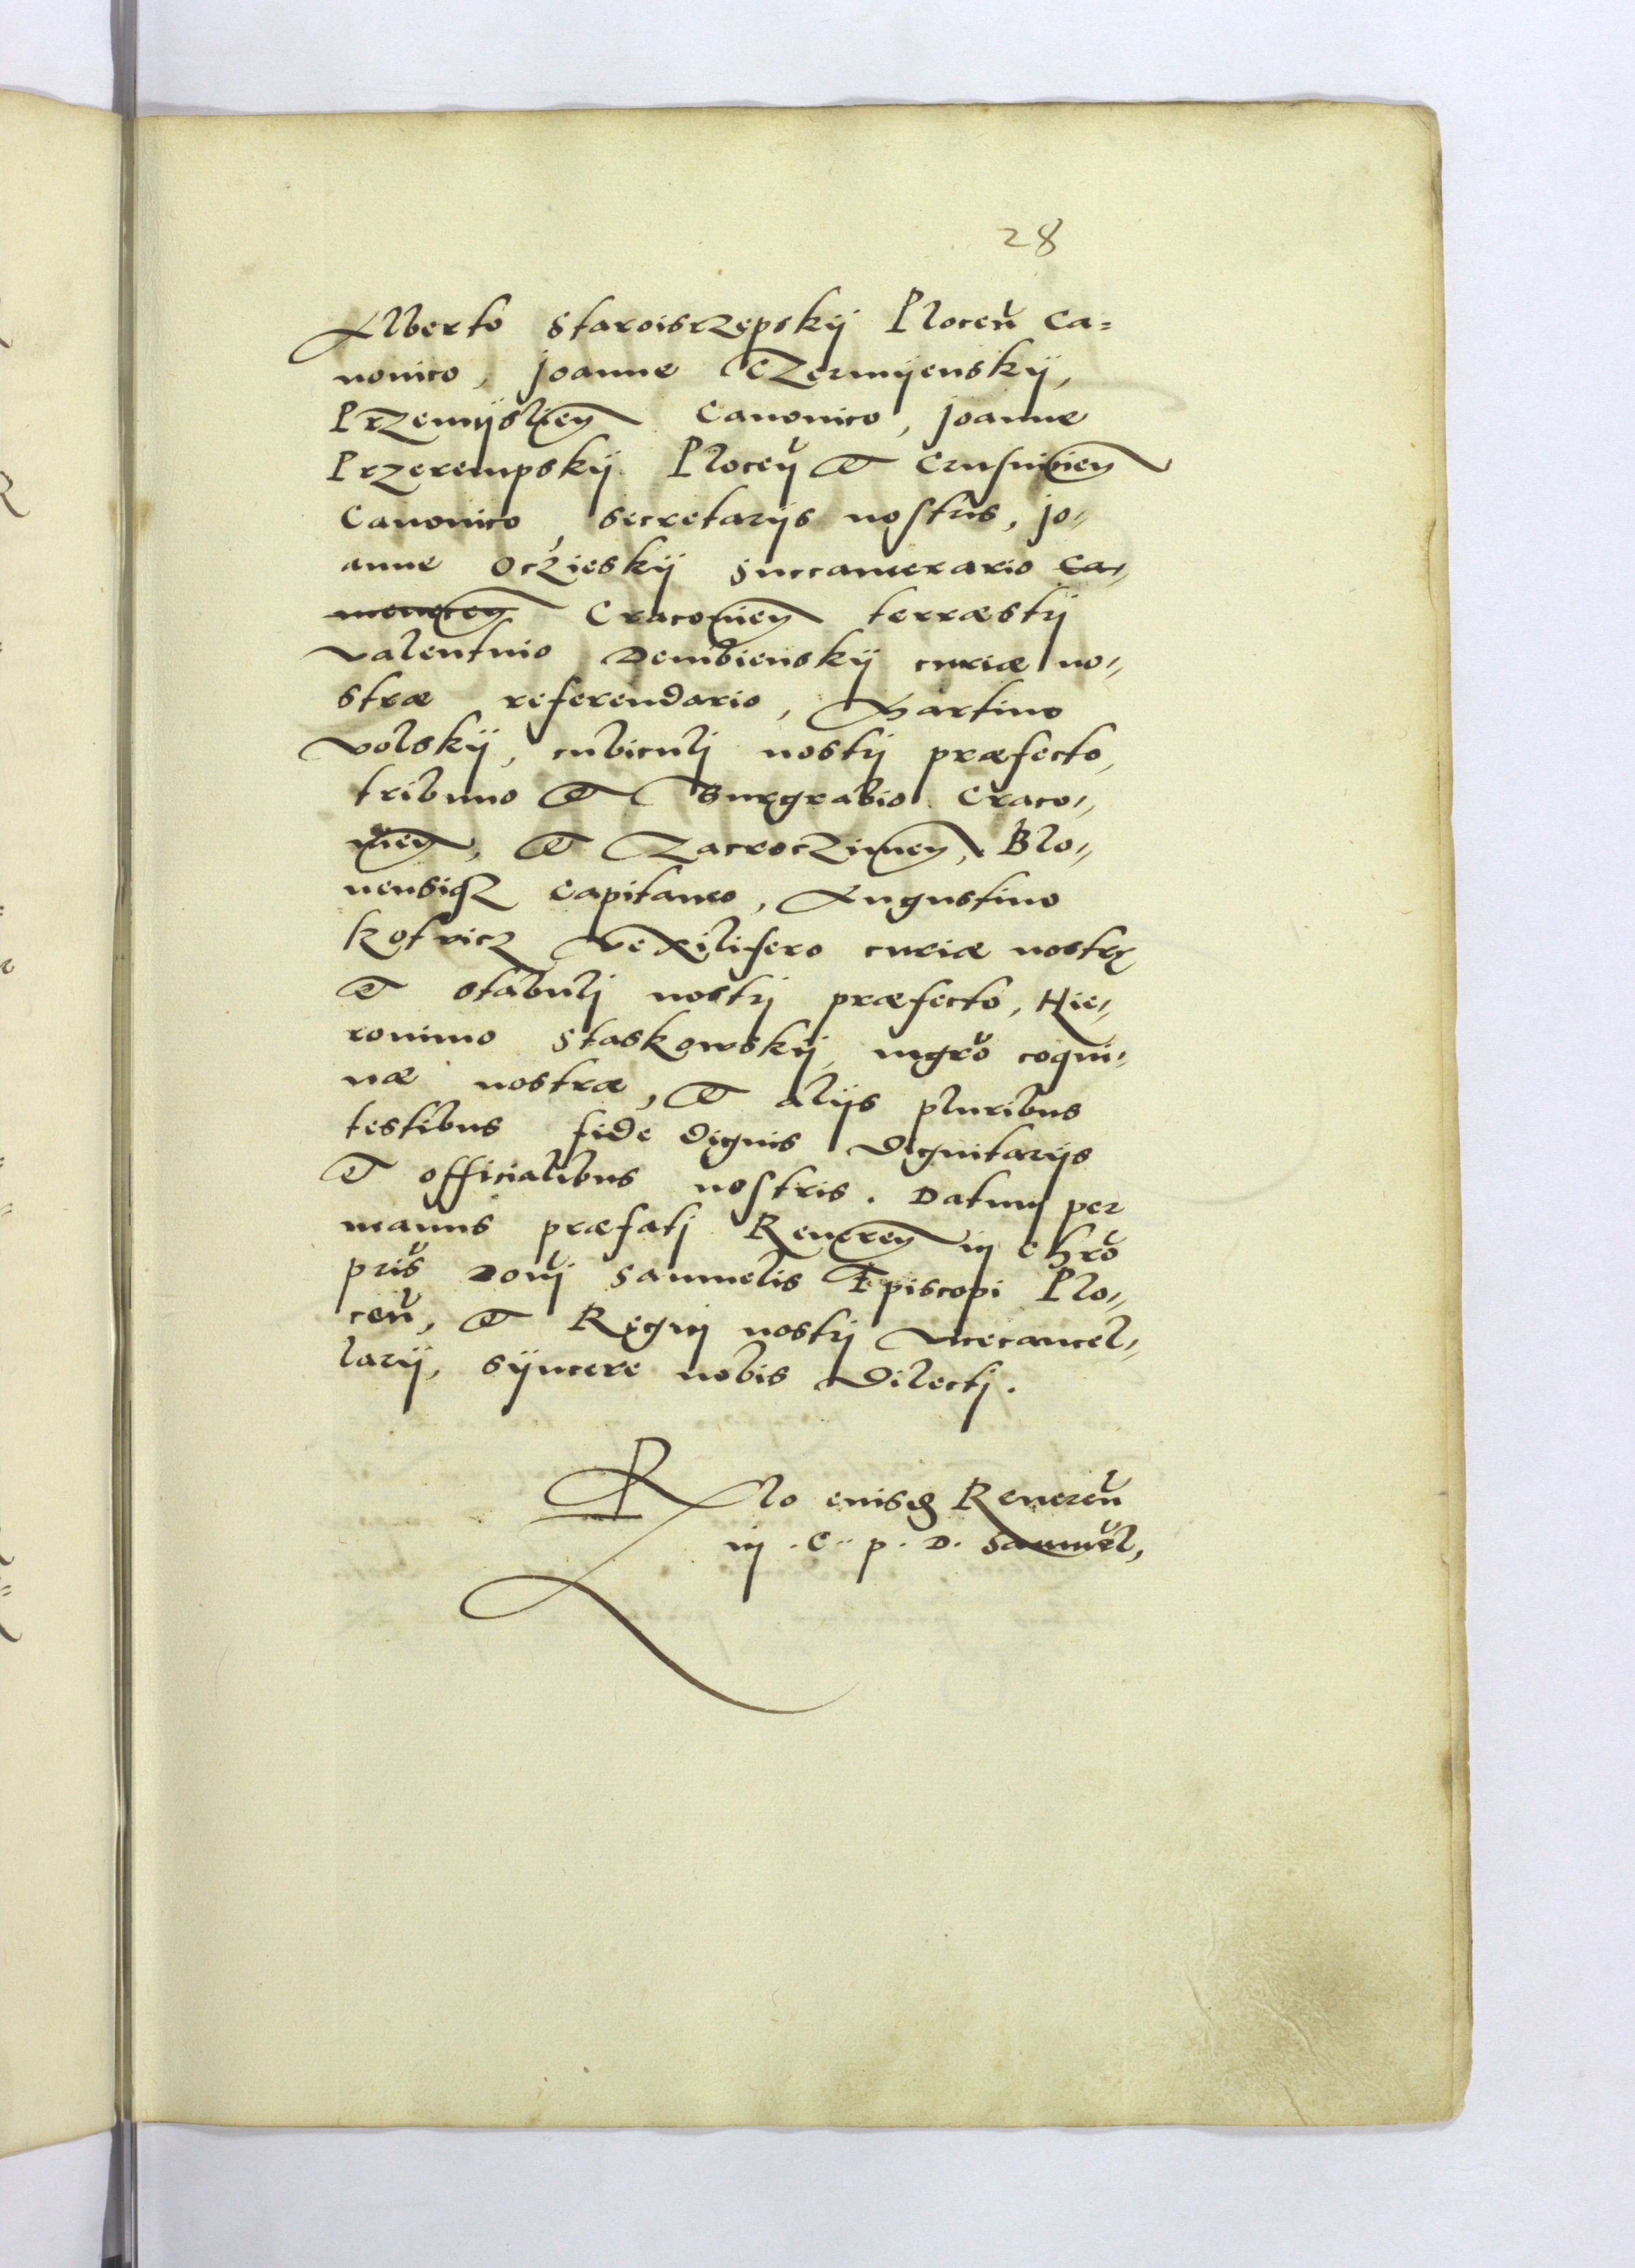 28
Alberto Staroisrzepskij Plocen̄ Ca=
nonico, Joanne Czermijenskij,
Przemijslien̄ Canonico, Joanne
Przerempskij Plocen̄ et Crusvicien̄
Canonico, secretarijs nostris, Jo=
anne Oczieskij Succamerario Ca=
menecen̄ Cracovien̄ terræstrj
Valentino Dembienskij curiæ no=
stræ referendario, Martino
Volskij, cubiculj nostrj præfecto,
tribuno et Burgrabio Craco=
vien̄, et Zacroczimen̄, Blo=
nensiqʒ Capitaneo, Augustino
Kotvicz Vexilifero curiæ nostrę
et stabulj nostrj præfecto, Hie=
ronimo Staskowskij, mgr̄o coqui=
næ nostræ, et alijs pluribus
testibus fide dignis Dignitarijs
et officialibus nostris. Datum per
manus præfatj Reveren̄ in Chr̄o
pr̄is Dom̄j Samuelis Episcopi Plo=
cen̄, et Regnj nostrj Vicecancel=
larij, sijncere nobis Dilectj.
R̄lo eiusd Reveren̄
in . C . p . D . Samuel,